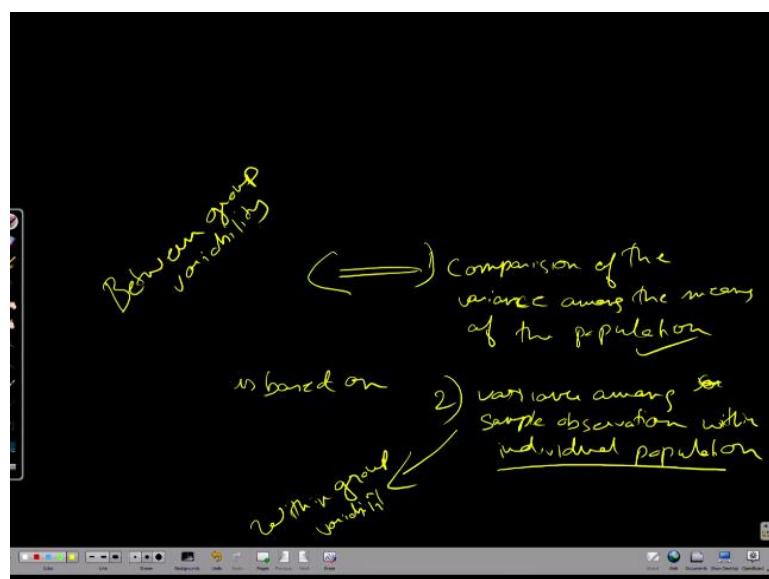 Between group
variability
1) Comparision of the
variance among the means
of the population
is based on
2) variance among
sample observation within
individual population
within group
variability
Color
Line
Eraser
Backgrounds
Undo
Redo
Pages
Previous
Next
Erase
Board
Web
Documents
Show Desktop
OpenBoard